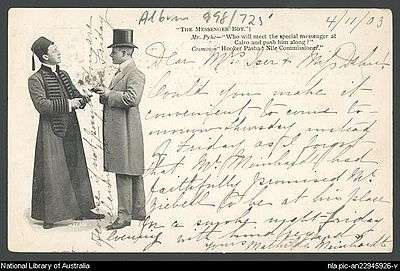 Album 998/725
4/11/03
"THE MESSENGER BOY."]
Mr. Pyke—"Who will meet the special messenger at
Cairo and push him along?"
Cosmos—"Hooker Pasha? Nile Commissioner."
Dear Mrs &
Could you make it
convenient to come to
morrow Thursday instead
of Friday as I forgot
that Mr. Meinhardt had
faithfully promised Mr.
to be at his place
for a smoke night Friday
evening with kind regards
yours
Meinhardt
National Library of Australia
nla.pic-an22945926-v